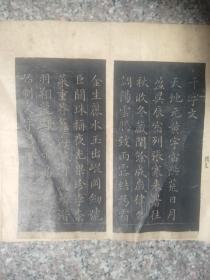 千字文
天地元黃宇宙洪荒日月
盈昃辰宿列張寒來暑往
秋收冬藏閏餘成歲律
調陽雲騰致雨露結為霜
金生麗水玉出崑岡劍號
巨闕珠稱夜光果珍李柰
菜重芥薑海鹹河淡鱗潛
羽翔龍師
始制文字